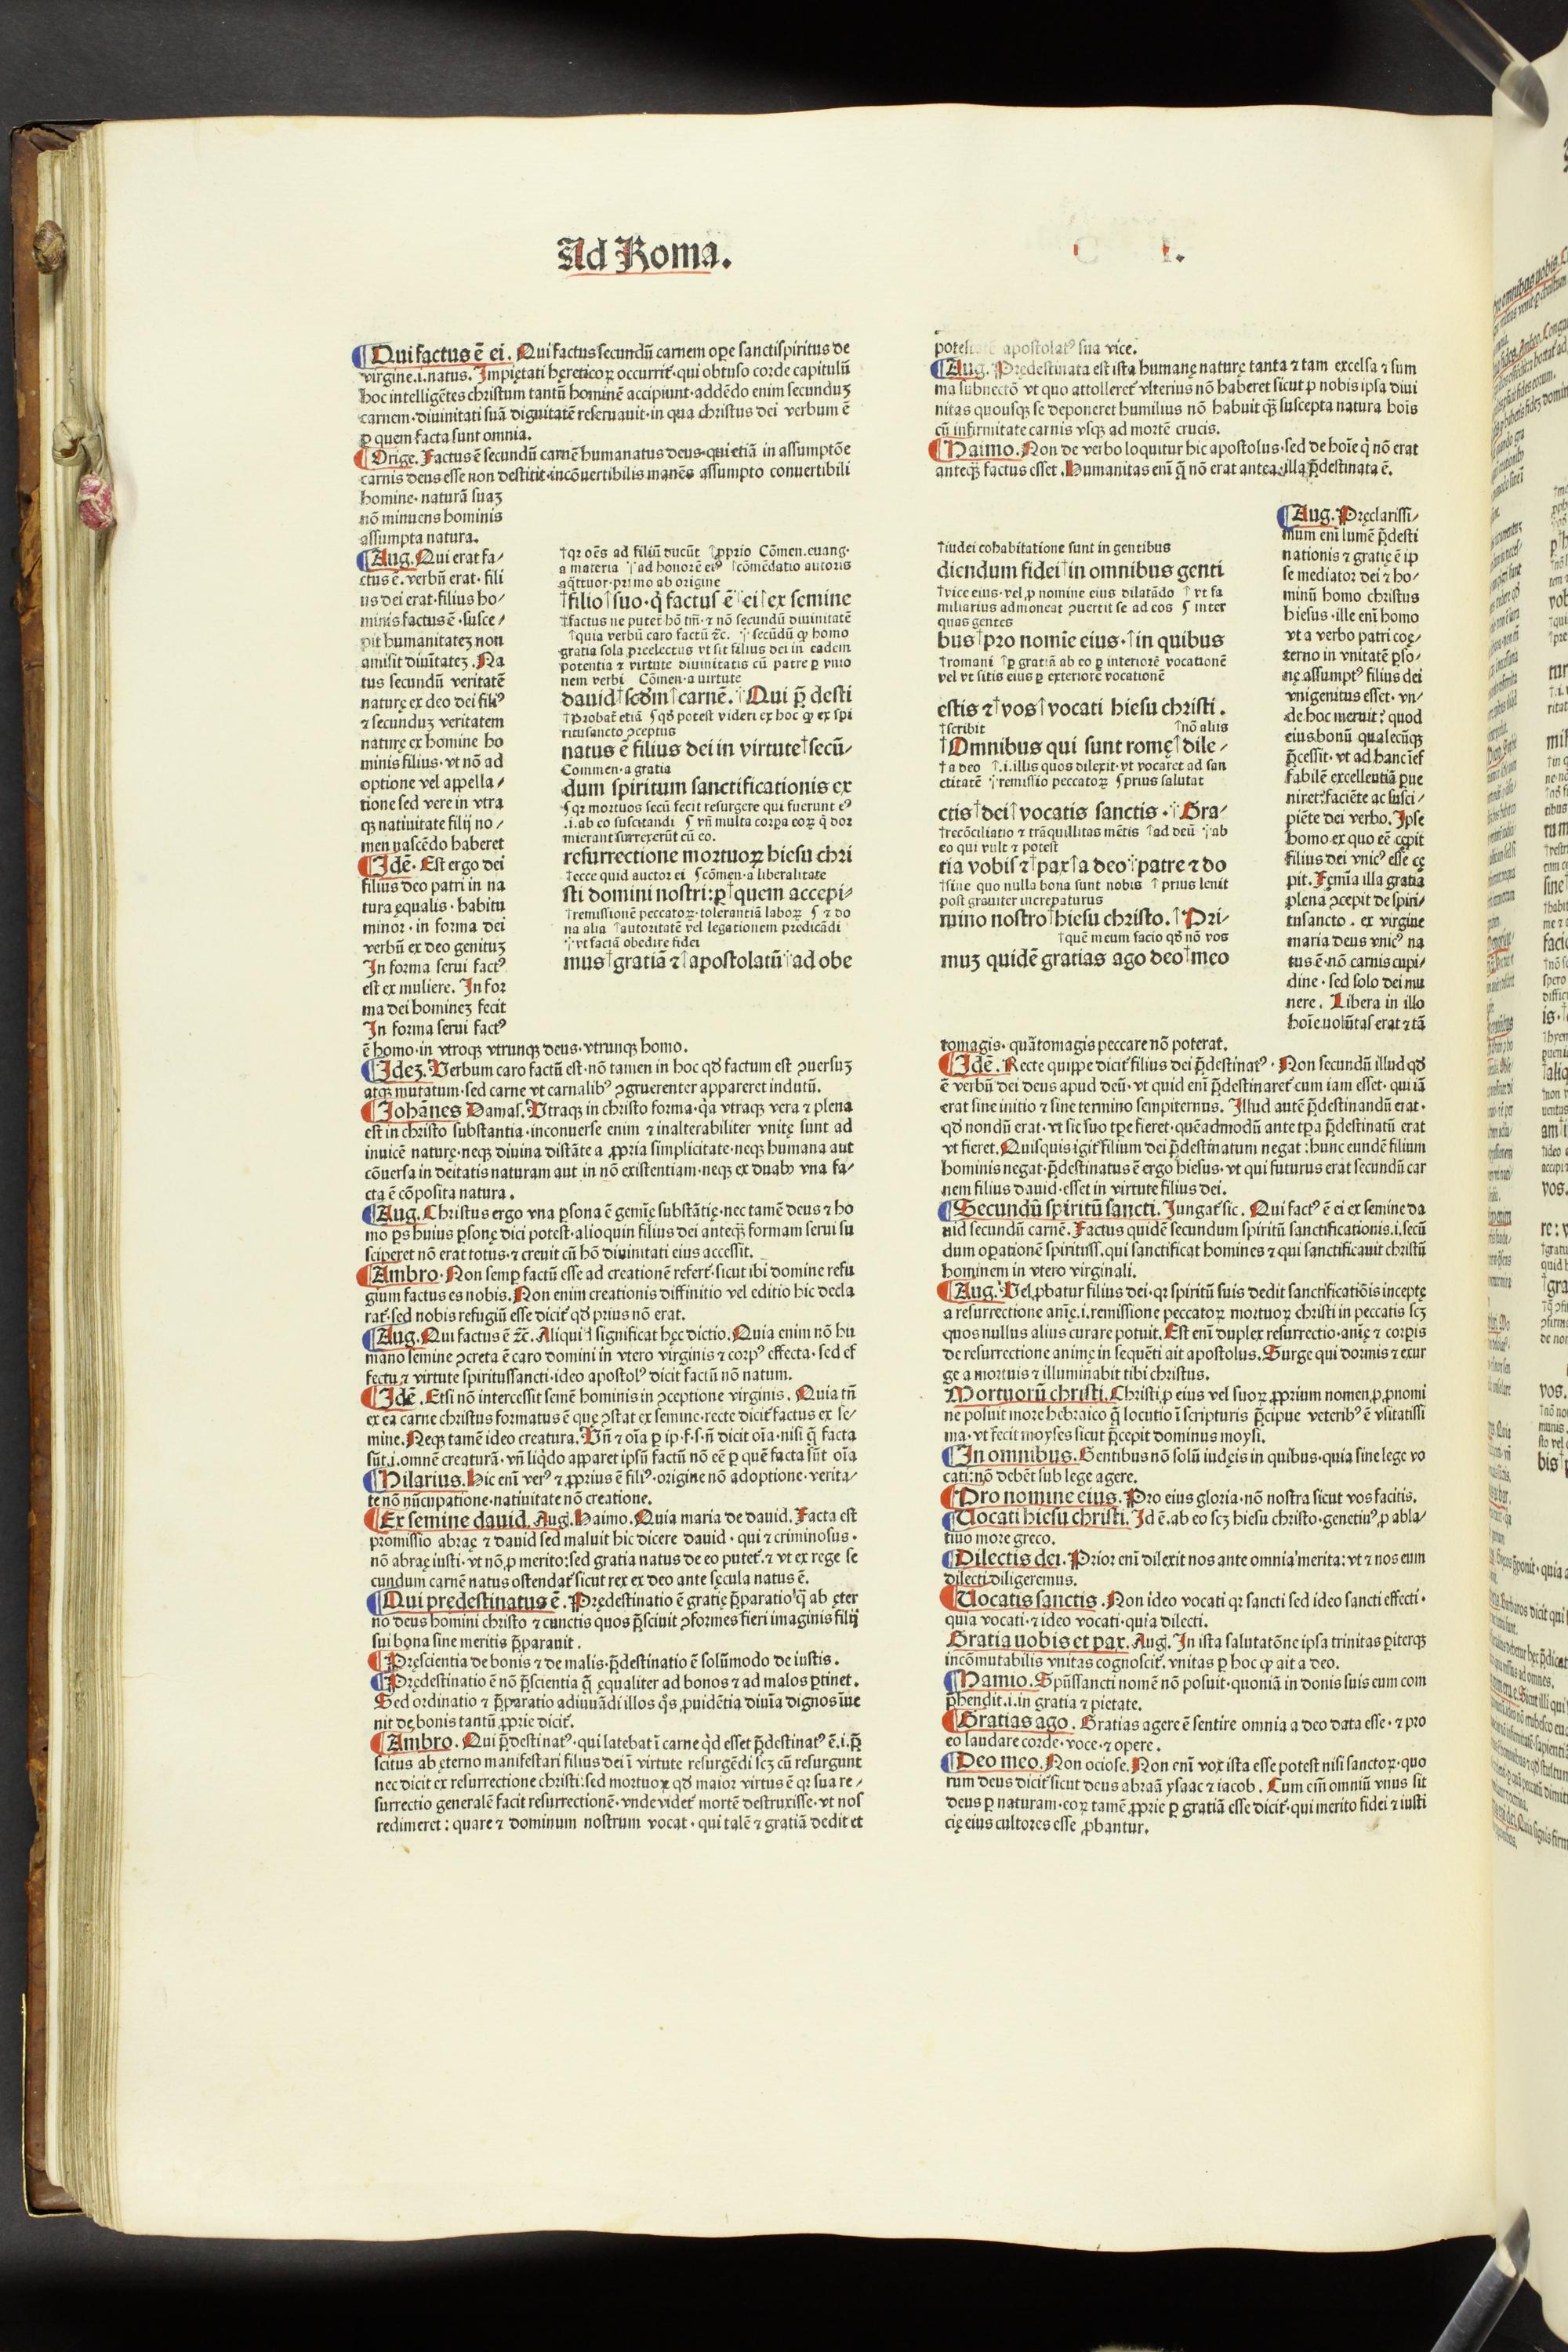 Ad Roma.
I.
Qui factus ē ei. Qui factus secundū carnem oꝑe sanctispiritus de
virgine.i.natus. Impietati hęreticoꝝ occurrit·qui obtuso corde capitulū
hoc intelligētes christum tantū hominē accipiunt·addēdo enim secunduꝫ
carnem·diuinitati suā dignitatē reseruauit·in qua christus dei verbum ē
ꝑ quem facta sunt omnia.
Orige. Factus ē secundū carnē humanatus deus·qui etiā in assumptōe
carnis deus esse non destitit·incōuertibilis manēs assumpto conuertibili
homine·naturā suaꝫ
nō minuens hominis
assumpta natura.
Aug. Qui erat fa⸗
ctus ē. verbū erat· fili
us dei erat·filius ho⸗
minis factus ē·susce⸗
pit humanitateꝫ non
amisit diuītateꝫ. Na
tus secundū veritatē
naturę ex deo dei filiꝰ
⁊ secunduꝫ veritatem
naturę ex homine ho
minis filius·vt nō ad
optione vel appella⸗
tione sed vere in vtra
qꝫ natiuitate filij no⸗
men nascēdo haberet
Idē· Est ergo dei
filius deo patri in na
tura ęqualis· habitu
minor· in forma dei
verbū ex deo genituꝫ
In forma serui factꝰ
est ex muliere. In for
ma dei homineꝫ fecit
In forma serui factꝰ
ē homo·in vtroqꝫ vtrunqꝫ deus·vtrunqꝫ homo.
Ideꝫ. Verbum caro factū est·nō tamen in hoc qđ factum est ꝯuersuꝫ
atqꝫ mutatum·sed carne vt carnalibꝰ ꝯgruenter appareret indutū.
Iohānes Damas. Vtraqꝫ in christo forma·q̇a vtraqꝫ vera ⁊ plena
est in christo substantia·inconuerse enim ⁊ inalterabiliter vnitę sunt ad
inuicē naturę·neqꝫ diuina distāte a ꝓpria simplicitate·neqꝫ humana aut
cōuersa in deitatis naturam aut in nō existentiam·neqꝫ ex duabꝰ vna fa⸗
cta ē cōposita natura.
Aug. Christus ergo vna ꝑsona ē geminę substātię·nec tamē deus ⁊ ho
mo ꝑs huius ꝑsonę dici potest·alioquin filius dei anteqꝫ formam serui su
sciperet nō erat totus·⁊ creuit cū hō diuinitati eius accessit.
Ambro· Non semꝑ factū esse ad creationē refert·sicut ibi domine refu
gium factus es nobis. Non enim creationis diffinitio vel editio hic decla
rat·sed nobis refugiū esse dicit qđ prius nō erat.
Aug. Qui factus ē ⁊c̄. Aliquid significat hęc dictio. Quia enim nō hu
mano semine ꝯcreta ē caro domini in vtero virginis ⁊ corpꝰ effecta·sed ef
fectu ⁊ virtute spiritussancti·ideo apostolꝰ dicit factū nō natum.
Idē. Etsi nō intercessit semē hominis in ꝯceptione virginis. Quia tn̄
ex ea carne christus formatus ē quę ꝯstat ex semine·recte dicit factus ex se⸗
mine. Neqꝫ tamē ideo creatura. Vn̄ ⁊ oīa ꝑ ip·f·s·n̄ dicit oīa·nisi q̄ facta
sūt.i.omnē creaturā·vn̄ liq̇do apparet ipsū factū nō eē ꝑ quē facta sūt oīa
Hilarius. Hic enī verꝰ ⁊ ꝓprius ē filiꝰ·origine nō adoptione·verita⸗
te nō nūcupatione·natiuitate nō creatione.
Ex semine dauid. Aug. Haimo. Quia maria de dauid. Facta est
promissio abraę ⁊ dauid sed maluit hic dicere dauid·qui ⁊ criminosus·
nō abraę iusti·vt nō ꝓ merito:sed gratia natus de eo putet·⁊ vt ex rege se
cundum carnē natus ostendat sicut rex ex deo ante sęcula natus ē.
Qui predestinatus ē. Prędestinatio ē gratię p̄paratio q̄ ab ęter
no deus homini christo ⁊ cunctis quos p̄sciuit ꝯformes fieri imaginis filij
sui bona sine meritis p̄parauit.
Pręscientia de bonis ⁊ de malis·p̄destinatio ē solūmodo de iustis.
Prędestinatio ē nō p̄scientia q̄ ęqualiter ad bonos ⁊ ad malos ꝑtinet.
Sed ordinatio ⁊ p̄paratio adiuuādi illos q̊s ꝓuidētia diuīa dignos īue
nit de bonis tantū ꝓprie dicit.
Ambro. Qui p̄destinatꝰ·qui latebat ī carne q̇d esset p̄destinatꝰ ē.i.p̄
scitus ab ęterno manifestari filius dei ī virtute resurgēdi scꝫ cū resurgunt
nec dicit ex resurrectione christi:sed mortuoꝝ qđ maior virtus ē qꝛ sua re⸗
surrectio generalē facit resurrectionē·vnde videt mortē destruxisse·vt nos
redimeret: quare ⁊ dominum nostrum vocat·qui talē ⁊ gratiā dedit et
†qꝛ oēs ad filiū ducūt †ꝓprio Cōmen.euang·
a materia ⸪ad honorē eiꝰ †cōmēdatio autoris
aq̇ttuor·primo ab origine
†filio†suo·q̇ factus ē†ei†ex semine
‡factus ne putet hō tm̄·⁊ nō secundū diuinitatē
†quia verbū caro factū ⁊c̄. ⸪secūdū ꝙ homo
gratia sola ꝓreelectus vt sit filius dei in eadem
potentia ⁊ virtute diuinitatis cū patre ꝑ vnio
nem verbi Cōmen·a uirtute
dauid†scđm†carnē.†Qui p̄ desti
†Probat etiā ⸿qđ potest videri ex hoc ꝙ ex spi
ritusancto ꝯceptus
natus ē filius dei in virtute†secū⸗
Commen·a gratia
dum spiritum sanctificationis ex
⸿qꝛ mortuos secū fecit resurgere qui fuerunt eꝰ
.i.ab eo suscitandi ⸿ vn̄ multa corꝑa eoꝝ q̇ dor
mierant surrexerūt cū eo.
resurrectione mortuoꝝ hiesu chri
†ecce quid auctor ei ⸿cōmen·a liberalitate
sti domini nostri:ꝑ†quem accepi⸗
†remissionē peccatoꝝ·tolerantiā laboꝝ ⸿ ⁊ do
na alia †autoritatē vel legationem predicādi
⸪vt faciā obedire fidei
mus†gratiā ⁊†apostolatū⸪ad obe
apostolatꝰ sua vice.
Aug. Prędestinata est ista humanę naturę tanta ⁊ tam excelsa ⁊ sum
ma subnectō vt quo attolleret vlterius nō haberet sicut ꝓ nobis ipsa diui
nitas quousqꝫ se deponeret humilius nō habuit qꝫ suscepta natura hoīs
cū infirmitate carnis vsqꝫ ad mortē crucis.
Haimo. Non de verbo loquitur hic apostolus·sed de hoīe q̇ nō erat
anteqꝫ factus esset. Humanitas enī q̄ nō erat antea·illa p̄destinata ē.
†iudei cohabitatione sunt in gentibus
diendum fidei†in omnibus genti
†vice eius·vel ꝓ nomine eius dilatādo † vt fa
miliarius admoneat ꝯuertit se ad eos ⸿ inter
quas gentes
bus†pro nomīe eius·†in quibus
†romani †ꝑ gratiā ab eo ꝑ interiorē vocationē
vel vt sitis eius ꝑ exteriorē vocationē
estis ⁊†vos†vocati hiesu christi.
†scribit †nō alius
†Omnibus qui sunt romę†dile⸗
†a deo †.i.illis quos dilexit·vt vocaret ad san
ctitatē ⸪remissio peccatoꝝ ⸿prius salutat
ctis†dei†vocatis sanctis·⸪Gra⸗
†recōciliatio ⁊ trāquillitas mētis †ad deū ⸪ab
eo qui vult ⁊ potest
tia vobis ⁊†pax†a deo⸪patre ⁊ do
†sine quo nulla bona sunt nobis † prius lenit
post grauiter increpaturus
mino nostro†hiesu christo.†Pri⸗
†quē meum facio qđ nō vos
muꝫ quidē gratias ago deo†meo
Aug. Pręclarissi⸗
mum enī lumē p̄desti
nationis ⁊ gratię ē ip
se mediator dei ⁊ ho⸗
minū homo christus
hiesus·ille enī homo
vt a verbo patri coę⸗
terno in vnitatē ꝑso⸗
nę assumptꝰ filius dei
vnigenitus esset·vn⸗
de hoc meruit? quod
eius bonū qualecūqꝫ
p̄cessit·vt ad hanc īef
fabilē excellentiā ꝑue
niret:faciēte ac susci⸗
piēte dei verbo. Ipse
homo ex quo eē cępit
filius dei vnicꝰ esse cę
pit. Fęmīa illa gratia
plena ꝯcepit de spiri⸗
tusancto. ex virgine
maria deus vnicꝰ na
tus ē·nō carnis cupi⸗
dine·sed solo dei mu
nere. Libera in illo
hoīe uolūtas erat ⁊ tā
tomagis·quātomagis peccare nō poterat.
Idē. Recte quippe dicit filius dei p̄destinatꝰ· Non secundū illud qđ
ē verbū dei deus apud deū·vt quid enī p̄destinaret cum iam esset·qui iā
erat sine initio ⁊ sine termino sempiternus. Illud autē p̄destinandū erat·
qđ nondū erat·vt sic suo tꝑe fieret·quēadmodū ante tꝑa p̄destinatū erat
vt fieret. Quisquis igit filium dei p̄destinatum negat:hunc eundē filium
hominis negat·p̄destinatus ē ergo hiesus·vt qui futurus erat secundū car
nem filius dauid·esset in virtute filius dei.
Secundū spiritū sancti. Iungat sic. Qui factꝰ ē ei ex semine da
uid secundū carnē. Factus quidē secundum spiritū sanctificationis.i.secū
dum oꝑationē spirituss.qui sanctificat homines ⁊ qui sanctificauit christū
hominem in vtero virginali.
Aug. Vel ꝓbatur filius dei·qꝛ spiritū suis dedit sanctificatiōis inceptę
a resurrectione anīę.i.remissione peccatoꝝ mortuoꝝ christi in peccatis scꝫ
quos nullus alius curare potuit. Est enī duplex resurrectio·anīę ⁊ corꝑis
de resurrectione animę in sequēti ait apostolus. Surge qui dormis ⁊ exur
ge a mortuis ⁊ illuminabit tibi christus.
Mortuorū christi. Christi ꝓ eius vel suoꝝ ꝓprium nomen ꝓ pnomi
ne posuit more hebraico q̄ locutio ī scripturis p̄cipue veteribꝰ ē vsitatissi
ma·vt fecit moyses sicut p̄cepit dominus moysi.
In omnibus. Gentibus nō solū iudęis in quibus·quia sine lege vo
cati:nō debēt sub lege agere.
Pro nomine eius. Pro eius gloria·nō nostra sicut vos facitis.
Vocati hiesu christi. Id ē.ab eo scꝫ hiesu christo·genetiuꝰ ꝓ abla⸗
tiuo more greco.
Dilectis dei. Prior enī dilexit nos ante omnia merita:vt ⁊ nos eum
dilecti diligeremus.
Vocatis sanctis. Non ideo vocati qꝛ sancti sed ideo sancti effecti·
quia vocati·⁊ ideo vocati·quia dilecti.
Gratia uobis et pax. Aug. In ista salutatōne ipsa trinitas ꝑiterqꝫ
incōmutabilis vnitas cognoscit. vnitas ꝑ hoc ꝙ ait a deo.
Hamio. Spūssancti nomē nō posuit·quoniā in donis suis eum com
p̄hendit.i.in gratia ⁊ pietate.
Gratias ago. Gratias agere ē sentire omnia a deo data esse·⁊ pro
eo laudare corde·voce·⁊ opere.
Deo meo. Non ociose. Non enī vox ista esse potest nisi sanctoꝝ·quo
rum deus dicit sicut deus abraā ysaac ⁊ iacob. Cum eīm omniū vnus sit
deus ꝑ naturam·eoꝝ tamē ꝓprie ꝑ gratiā esse dicit·qui merito fidei ⁊ iusti
cię eius cultores esse ꝓbantur.